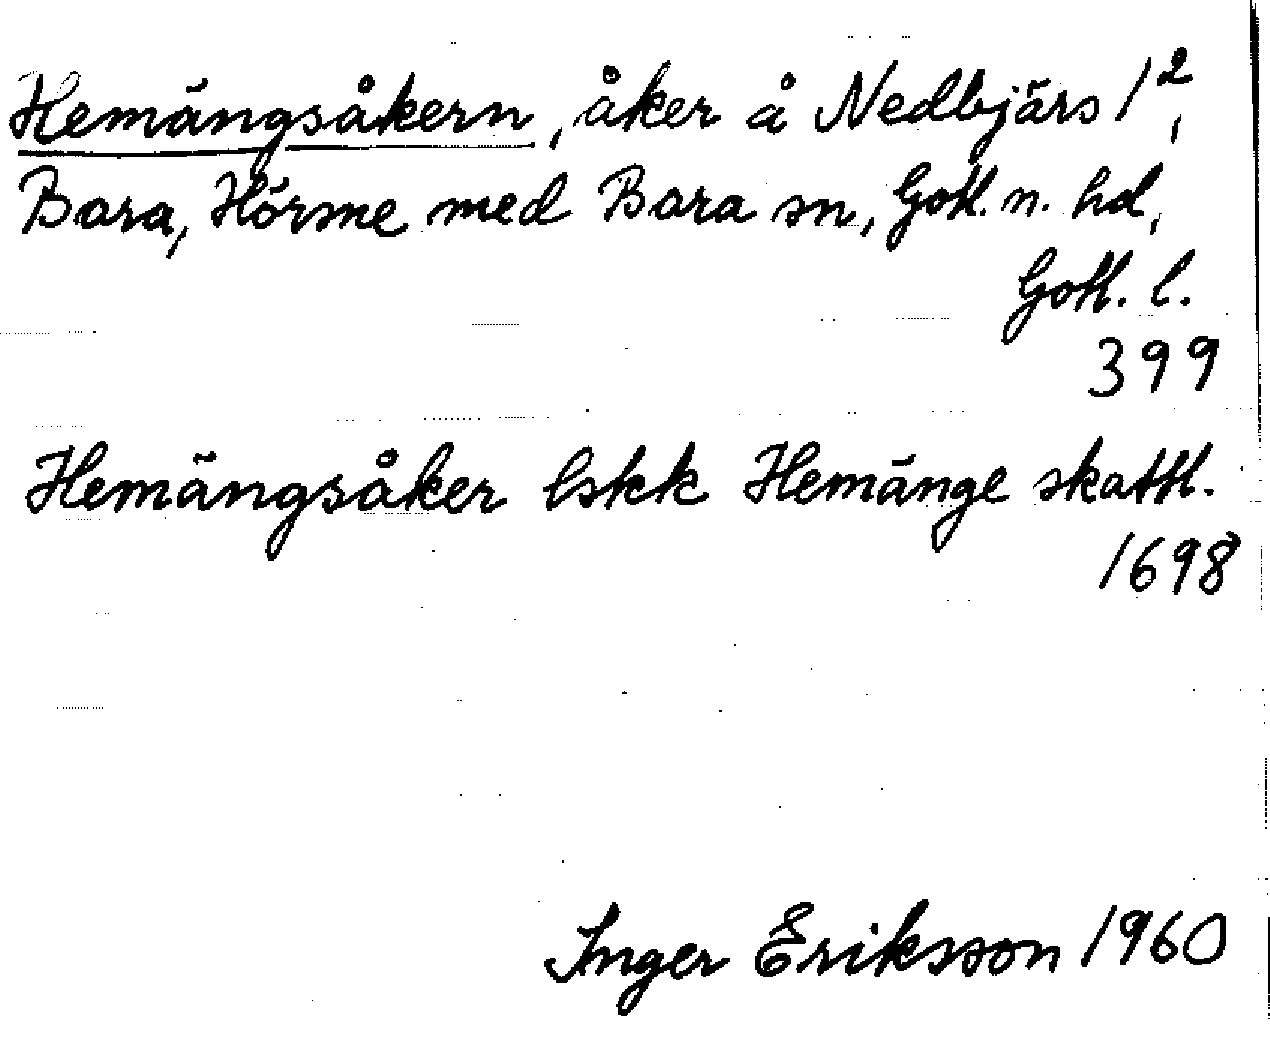 Hemängsåkern, åker å Nedbjärs 1²,
Bara, Hörsne med Bara sn, Gotl. n. hd,
Gotl. l.
399
Hemängsåker lskk Hemänge skattl.
1698
Inger Eriksson 1960